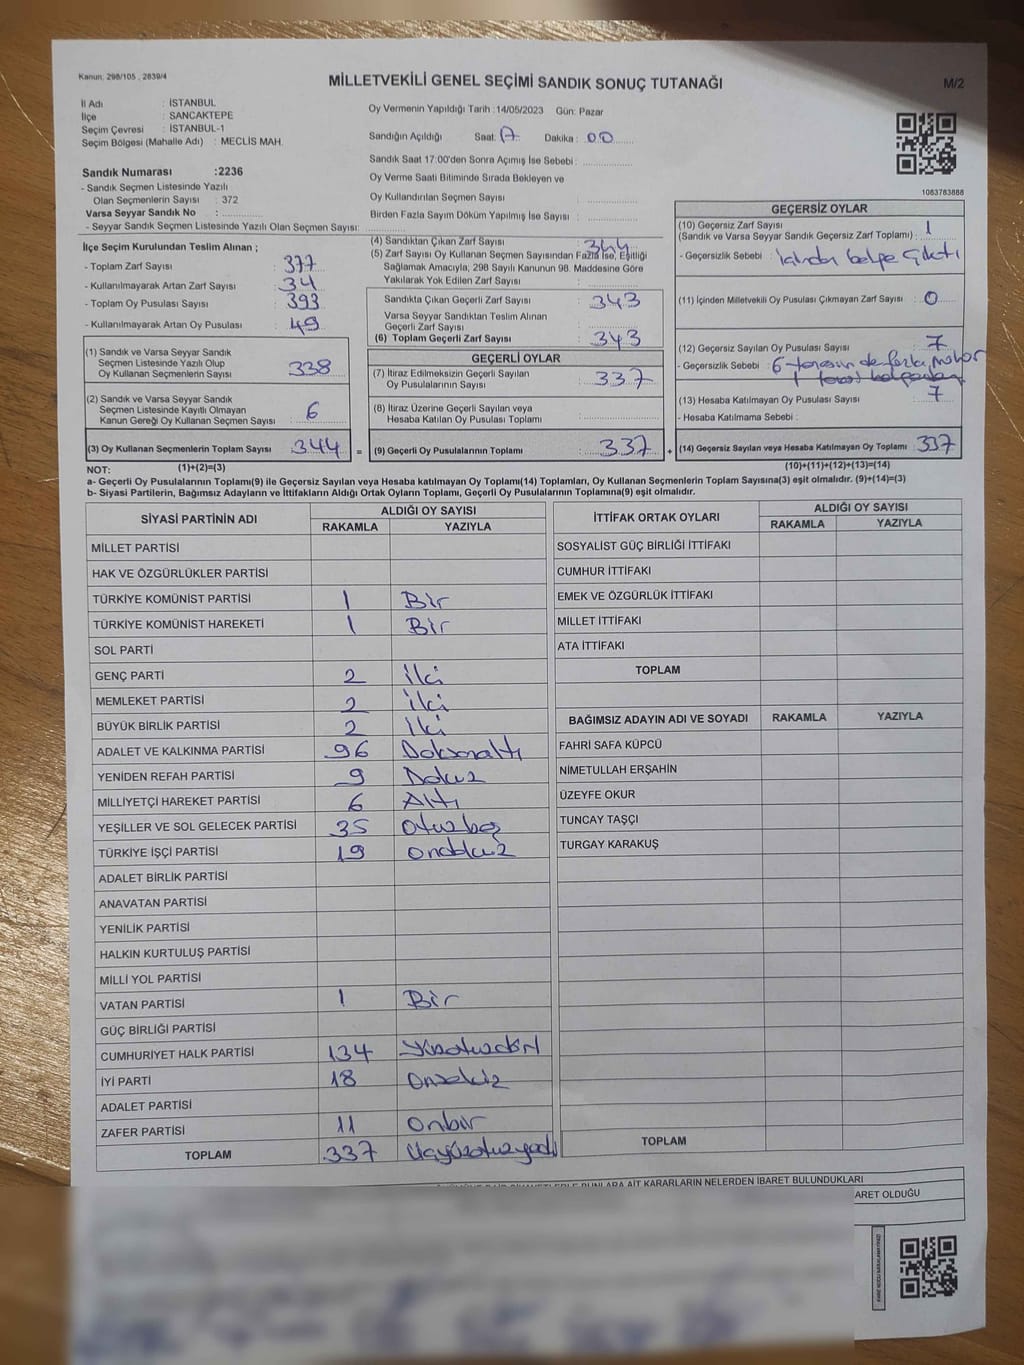 Kanun: 298/105 , 2839/4
MİLLETVEKİLİ GENEL SEÇİMİ SANDIK SONUÇ TUTANAĞI
M/2
İl Adı : İSTANBUL
İlçe : SANCAKTEPE
Seçim Çevresi : İSTANBUL-1
Seçim Bölgesi (Mahalle Adı) : MECLİS MAH.
Oy Vermenin Yapıldığı Tarih :14/05/2023 Gün: Pazar
Sandığın Açıldığı Saat: Dakika : 00
Sandık Saat 17:00'den Sonra Açımış İse Sebebi :
Oy Verme Saati Bitiminde Sırada Bekleyen ve
Oy Kullandırılan Seçmen Sayısı :
Birden Fazla Sayım Döküm Yapılmış İse Sayısı :
1083783888
Sandık Numarası :2236
- Sandık Seçmen Listesinde Yazılı
Olan Seçmenlerin Sayısı : 372
Varsa Seyyar Sandık No :
- Seyyar Sandık Seçmen Listesinde Yazılı Olan Seçmen Sayısı:
İlçe Seçim Kurulundan Teslim Alınan ;
- Toplam Zarf Sayısı : 377
- Kullanılmayarak Artan Zarf Sayısı : 34
- Toplam Oy Pusulası Sayısı : 393
- Kullanılmayarak Artan Oy Pusulası : 49
(1) Sandık ve Varsa Seyyar Sandık
Seçmen Listesinde Yazılı Olup
Oy Kullanan Seçmenlerin Sayısı : 338
(2) Sandık ve Varsa Seyyar Sandık
Seçmen Listesinde Kayıtlı Olmayan
Kanun Gereği Oy Kullanan Seçmen Sayısı : 6
(3) Oy Kullanan Seçmenlerin Toplam Sayısı : 344 =
(4) Sandıktan Çıkan Zarf Sayısı : 344
(5) Zarf Sayısı Oy Kullanan Seçmen Sayısından Fazla İse, Eşitliği
Sağlamak Amacıyla, 298 Sayılı Kanunun 98. Maddesine Göre
Yakılarak Yok Edilen Zarf Sayısı :
Sandıkta Çıkan Geçerli Zarf Sayısı : 343
Varsa Seyyar Sandıktan Teslim Alınan
Geçerli Zarf Sayısı :
(6) Toplam Geçerli Zarf Sayısı : 343
GEÇERLİ OYLAR
(7) İtiraz Edilmeksizin Geçerli Sayılan
Oy Pusulalarının Sayısı : 337
(8) İtiraz Üzerine Geçerli Sayılan veya
Hesaba Katılan Oy Pusulası Toplamı :
(9) Geçerli Oy Pusulalarının Toplamı : 337 +
GEÇERSİZ OYLAR
(10) Geçersiz Zarf Sayısı : 1
(Sandık ve Varsa Seyyar Sandık Geçersiz Zarf Toplamı)
- Geçersizlik Sebebi : çıktı
(11) İçinden Milletvekili Oy Pusulası Çıkmayan Zarf Sayısı : 0
(12) Geçersiz Sayılan Oy Pusulası Sayısı : 7
- Geçersizlik Sebebi : 6 tanesin de fazla mühür
(13) Hesaba Katılmayan Oy Pusulası Sayısı : 7
- Hesaba Katılmama Sebebi :
(14) Geçersiz Sayılan veya Hesaba Katılmayan Oy Toplamı : 337
NOT: (1)+(2)=(3)
(10)+(11)+(12)+(13)=(14)
a- Geçerli Oy Pusulalarının Toplamı(9) ile Geçersiz Sayılan veya Hesaba katılmayan Oy Toplamı(14) Toplamları, Oy Kullanan Seçmenlerin Toplam Sayısına(3) eşit olmalıdır. (9)+(14)=(3)
b- Siyasi Partilerin, Bağımsız Adayların ve İttifakların Aldığı Ortak Oyların Toplamı, Geçerli Oy Pusulalarının Toplamına(9) eşit olmalıdır.
SİYASİ PARTİNİN ADI
ALDIĞI OY SAYISI
RAKAMLA YAZIYLA
MİLLET PARTİSİ
HAK VE ÖZGÜRLÜKLER PARTİSİ
TÜRKİYE KOMÜNİST PARTİSİ 1 Bir
TÜRKİYE KOMÜNİST HAREKETİ 1 Bir
SOL PARTİ
GENÇ PARTİ 2 İki
MEMLEKET PARTİSİ 2 İki
BÜYÜK BİRLİK PARTİSİ 2 İki
ADALET VE KALKINMA PARTİSİ 96 Doksanaltı
YENİDEN REFAH PARTİSİ 9 Dokuz
MİLLİYETÇİ HAREKET PARTİSİ 6 Altı
YEŞİLLER VE SOL GELECEK PARTİSİ 35 otuzbeş
TÜRKİYE İŞÇİ PARTİSİ 19 ondokuz
ADALET BİRLİK PARTİSİ
ANAVATAN PARTİSİ
YENİLİK PARTİSİ
HALKIN KURTULUŞ PARTİSİ
MİLLİ YOL PARTİSİ
VATAN PARTİSİ 1 Bir
GÜÇ BİRLİĞİ PARTİSİ
CUMHURİYET HALK PARTİSİ 134 Yüzotuzdört
İYİ PARTİ 18 Onsekiz
ADALET PARTİSİ
ZAFER PARTİSİ 11 Onbir
TOPLAM 337 Üçyüzotuzyedi
İTTİFAK ORTAK OYLARI
ALDIĞI OY SAYISI
RAKAMLA YAZIYLA
SOSYALİST GÜÇ BİRLİĞİ İTTİFAKI
CUMHUR İTTİFAKI
EMEK VE ÖZGÜRLÜK İTTİFAKI
MİLLET İTTİFAKI
ATA İTTİFAKI
TOPLAM
BAĞIMSIZ ADAYIN ADI VE SOYADI RAKAMLA YAZIYLA
FAHRİ SAFA KÜPCÜ
NİMETULLAH ERŞAHİN
ÜZEYFE OKUR
TUNCAY TAŞÇI
TURGAY KARAKUŞ
TOPLAM
BUNLARA AİT KARARLARIN NELERDEN İBARET BULUNDUKLARI
ARET OLDUĞU